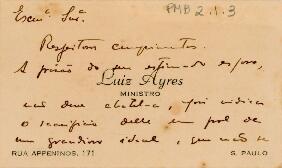 PMB 2.1.3
Exmª. Snrª.
Respeitosos cumprimentos.
A prisão do seu estimado esposo,
Luiz Ayres
MINISTRO
não deve abatel-a, pois indica
o sacrificio delle em prol de
um grandioso ideal, que não se
RUA APPENINOS, 171
S. PAULO